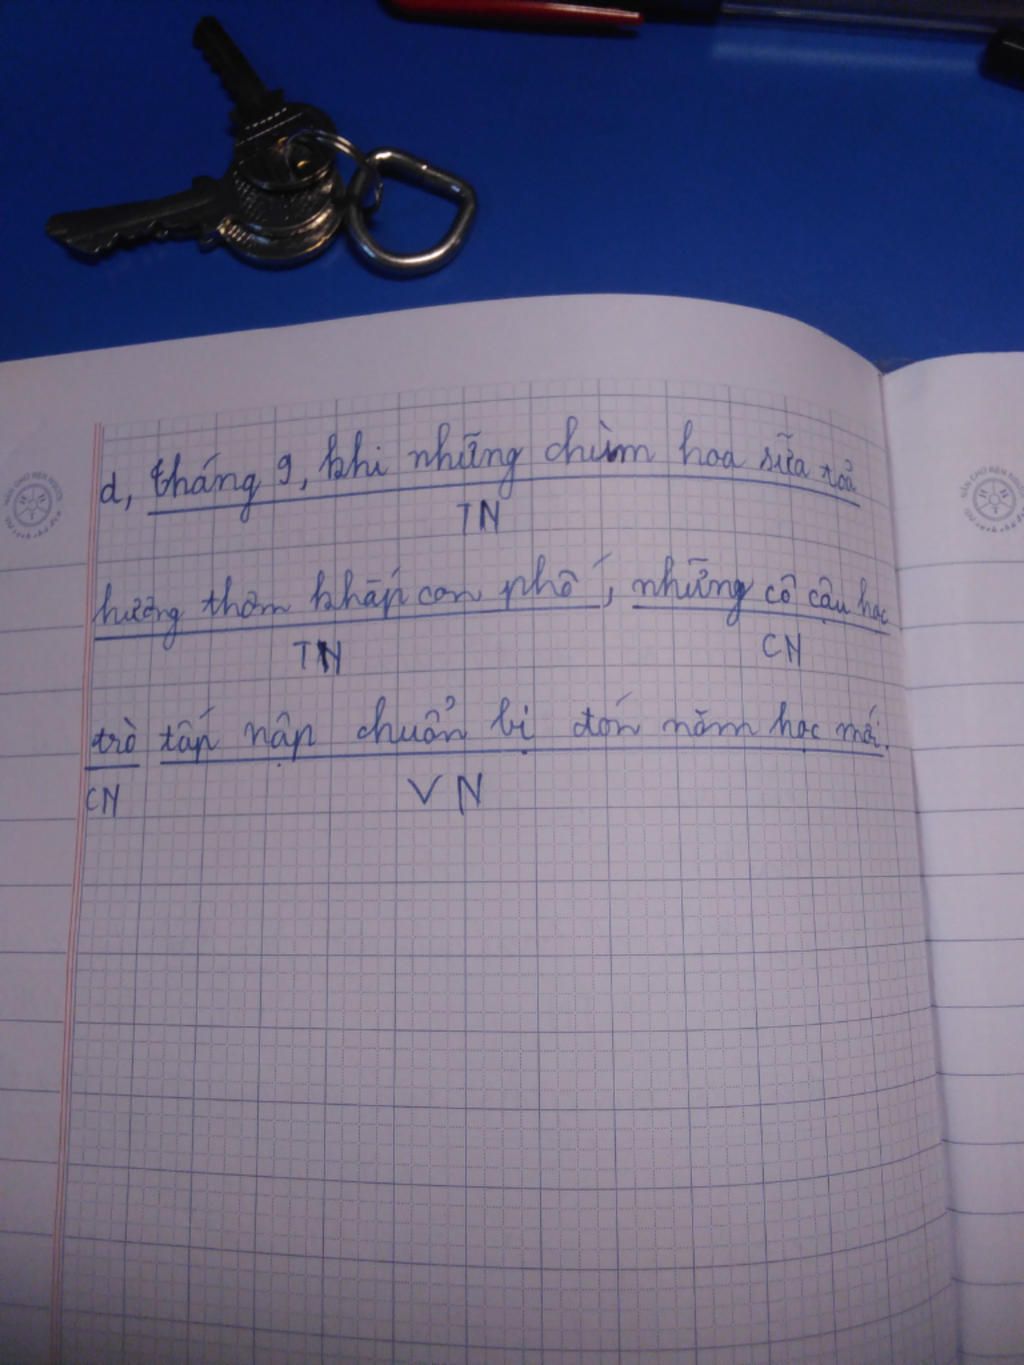 d, tháng 9, khi những chùm hoa sữa toả
TN
hương thơm khắp con phố, những cô cậu học
TN CN
trò tấp nập chuẩn bị đón năm học mới.
CN VN